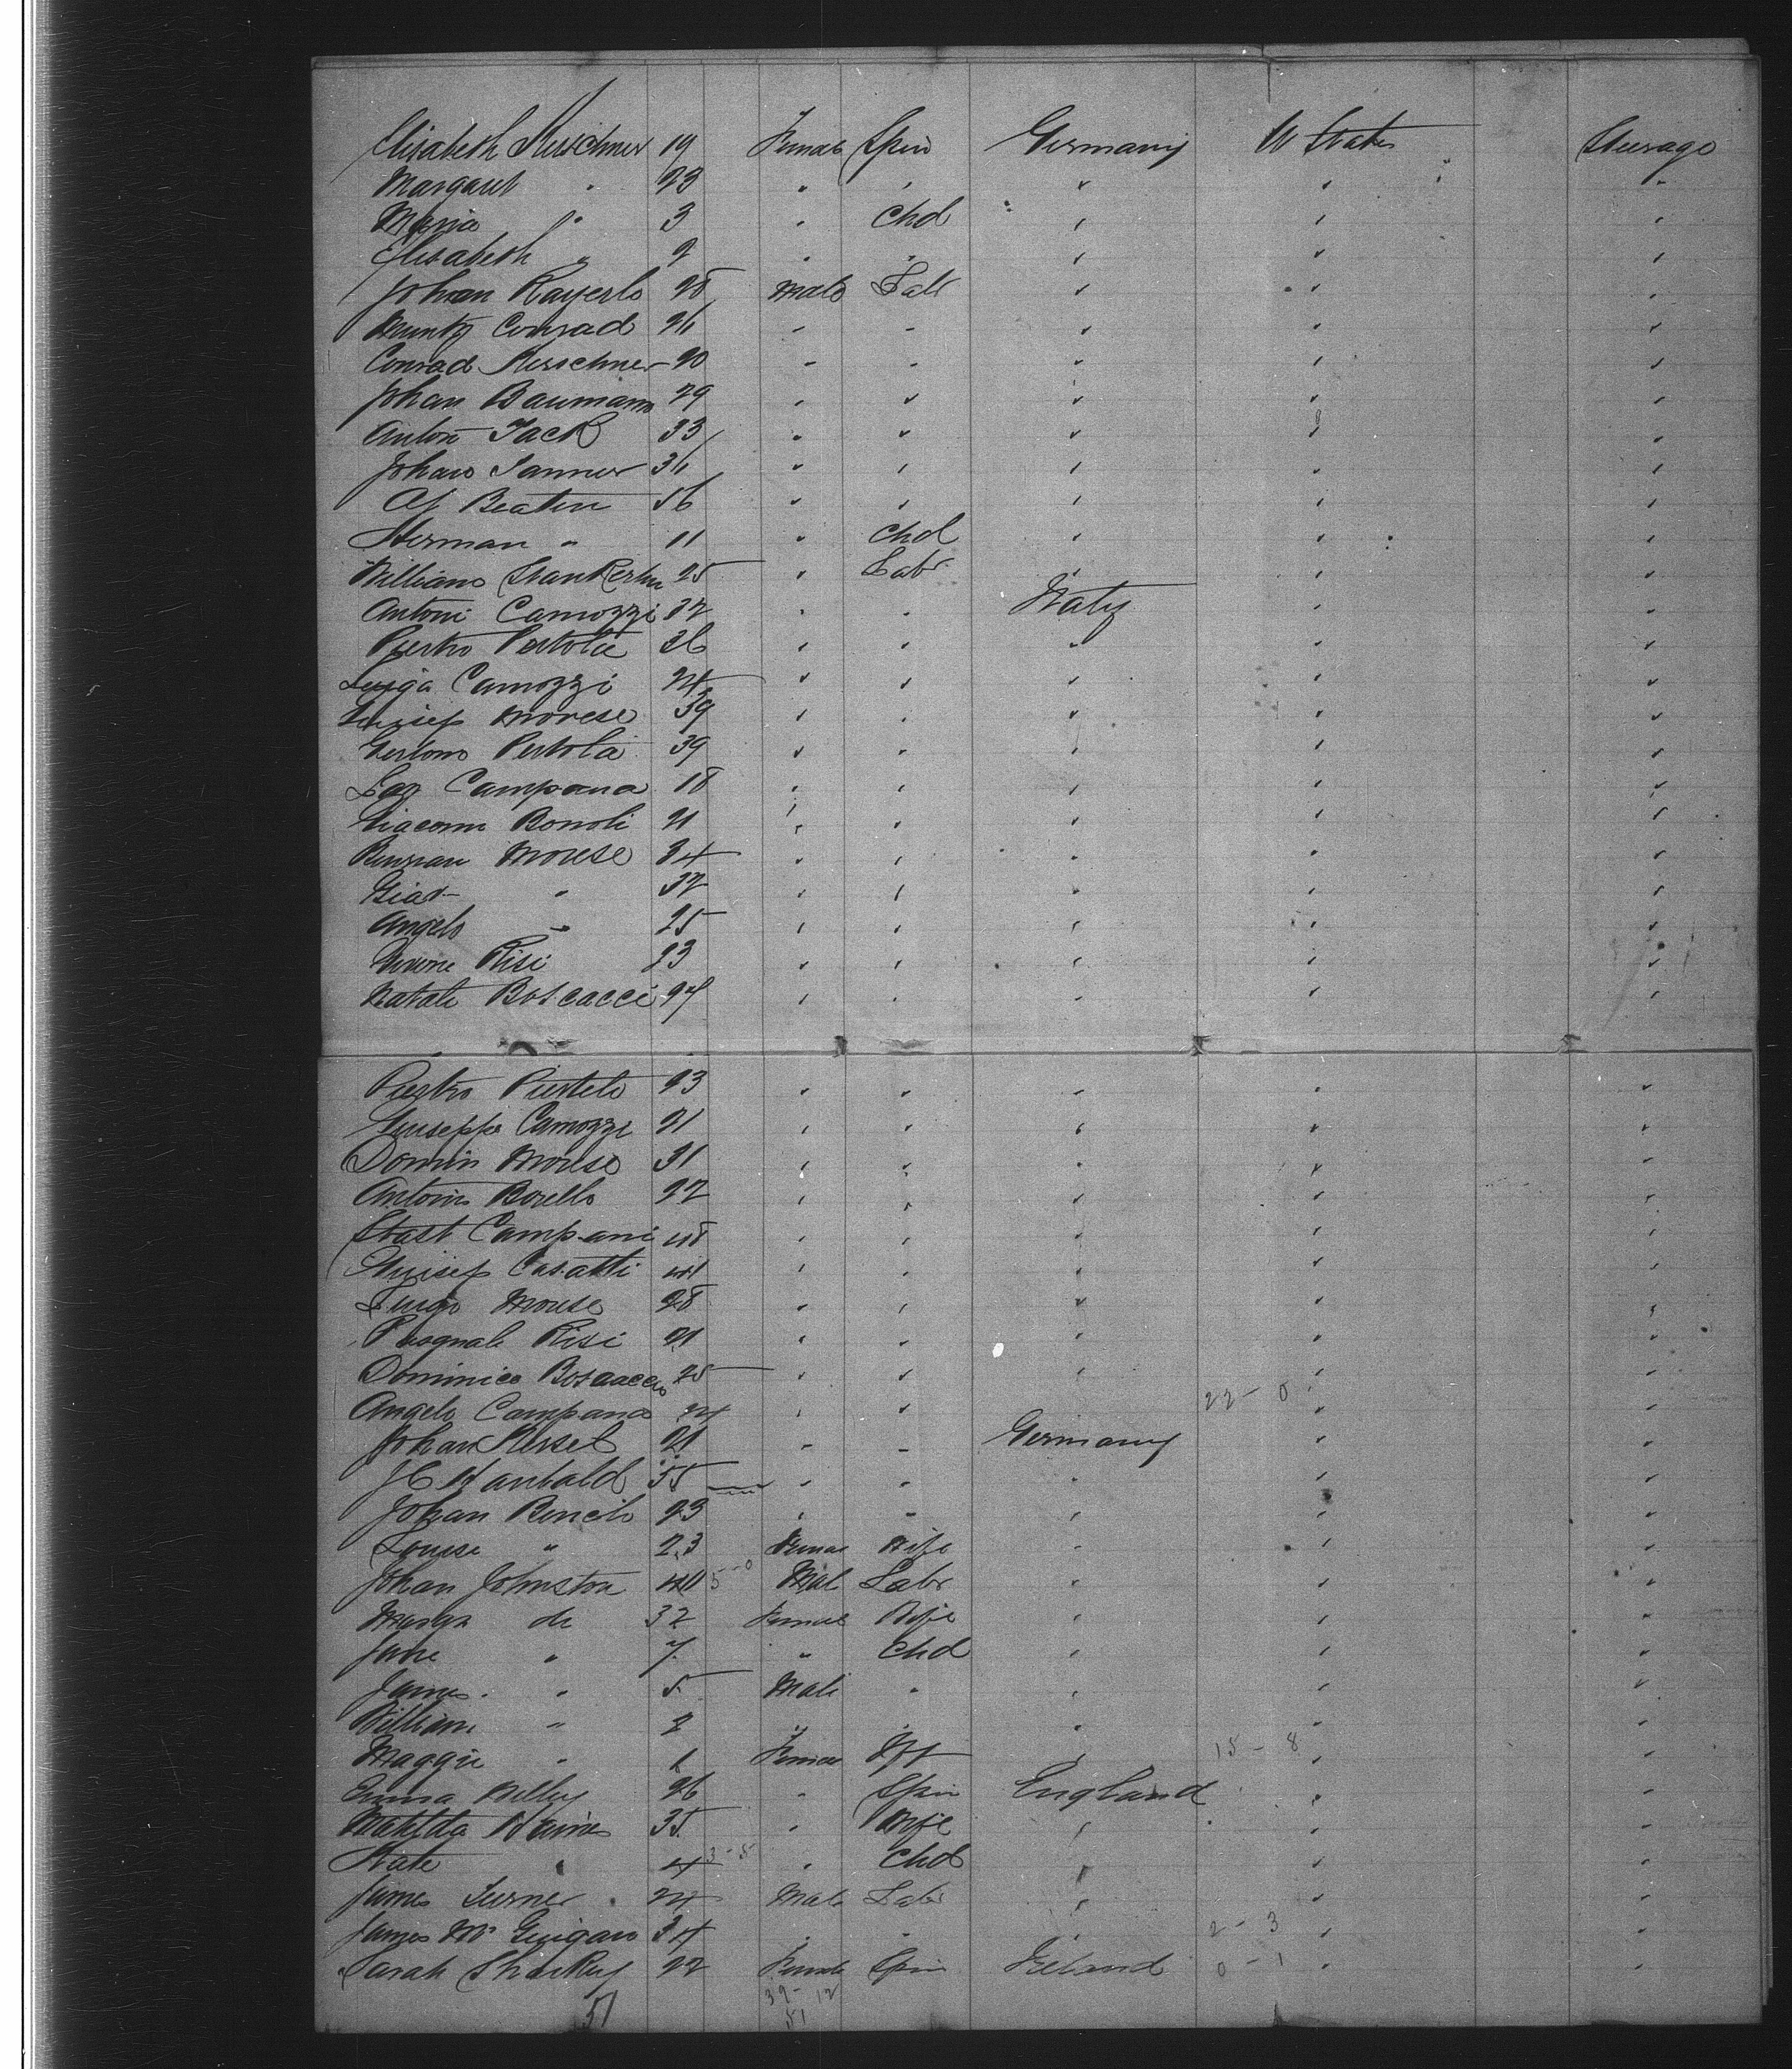 Elisabeth Kerschner 19 Female Spin Germany U States Steerage
Margaret " 23 " " " " "
Maria " 3 " Chd " " "
Elisabeth " 2 " " " " "
Johan Rayerle 28 Male Labr " " "
Conrad 26 " " " " "
Conrad Kerschner 20 " " " " "
Johan Baumann 29 " " " " "
Anton Jack 33 " " " " "
Johan Tanner 36 " " " " "
Beaten 56 " " " " "
Herman " 11 " Chd " " "
William 25 " Labr " " "
Antoni Camozzi 32 " " Italy " "
Pietro Pertola 36 " " " " "
Luiga Camozzi 24 " " " " "
Guisep Morese 39 " " " " "
Pertola 39 " " " " "
Campana 18 " " " " "
Giacomi Bonoli 21 " " " " "
Morese 34 " " " " "
Giac " 32 " " " " "
Angelo " 25 " " " " "
Risi 23 " " " " "
Natale Boscacci 27 " " " " "
Pietro 23 " " " " "
Guseppe Camozzi 21 " " " " "
Domin Morese 31 " " " " "
Antonio Borello 22 " " " " "
Campani 48 " " " " "
Guisep Casatti 41 " " " " "
Luigi Morese 28 " " " " "
Pasquale Risi 21 " " " " "
Dominico Boscaccio 25 " " " " "
Angelo Campana 24 " " " 22 - 0 " "
Johan Kessel 21 " " Germany " "
J C 55 " " " " "
Johan 23 " " " " "
Louise " 23 Female Wife " " "
Johan Johnston 40 5-0 Mal Labr " " "
Margr do 32 Female Wife " " "
Jane " 7 " Chd " " "
James " 5 Male " " " "
William " 2 " " " " "
Maggie " 1 Female Inft " 15 - 8 " "
Emma 26 " Spin England " "
Matilda 35 " Wife " " "
Kate " 4 3-5 " Chd " " "
James Turner 24 Male Labr " " "
James McGuigan 34 " " " 2 - 3 " "
Sarah Sharkey 22 Female Spin Ireland 0 - 1 " "
39 - 12
51 51